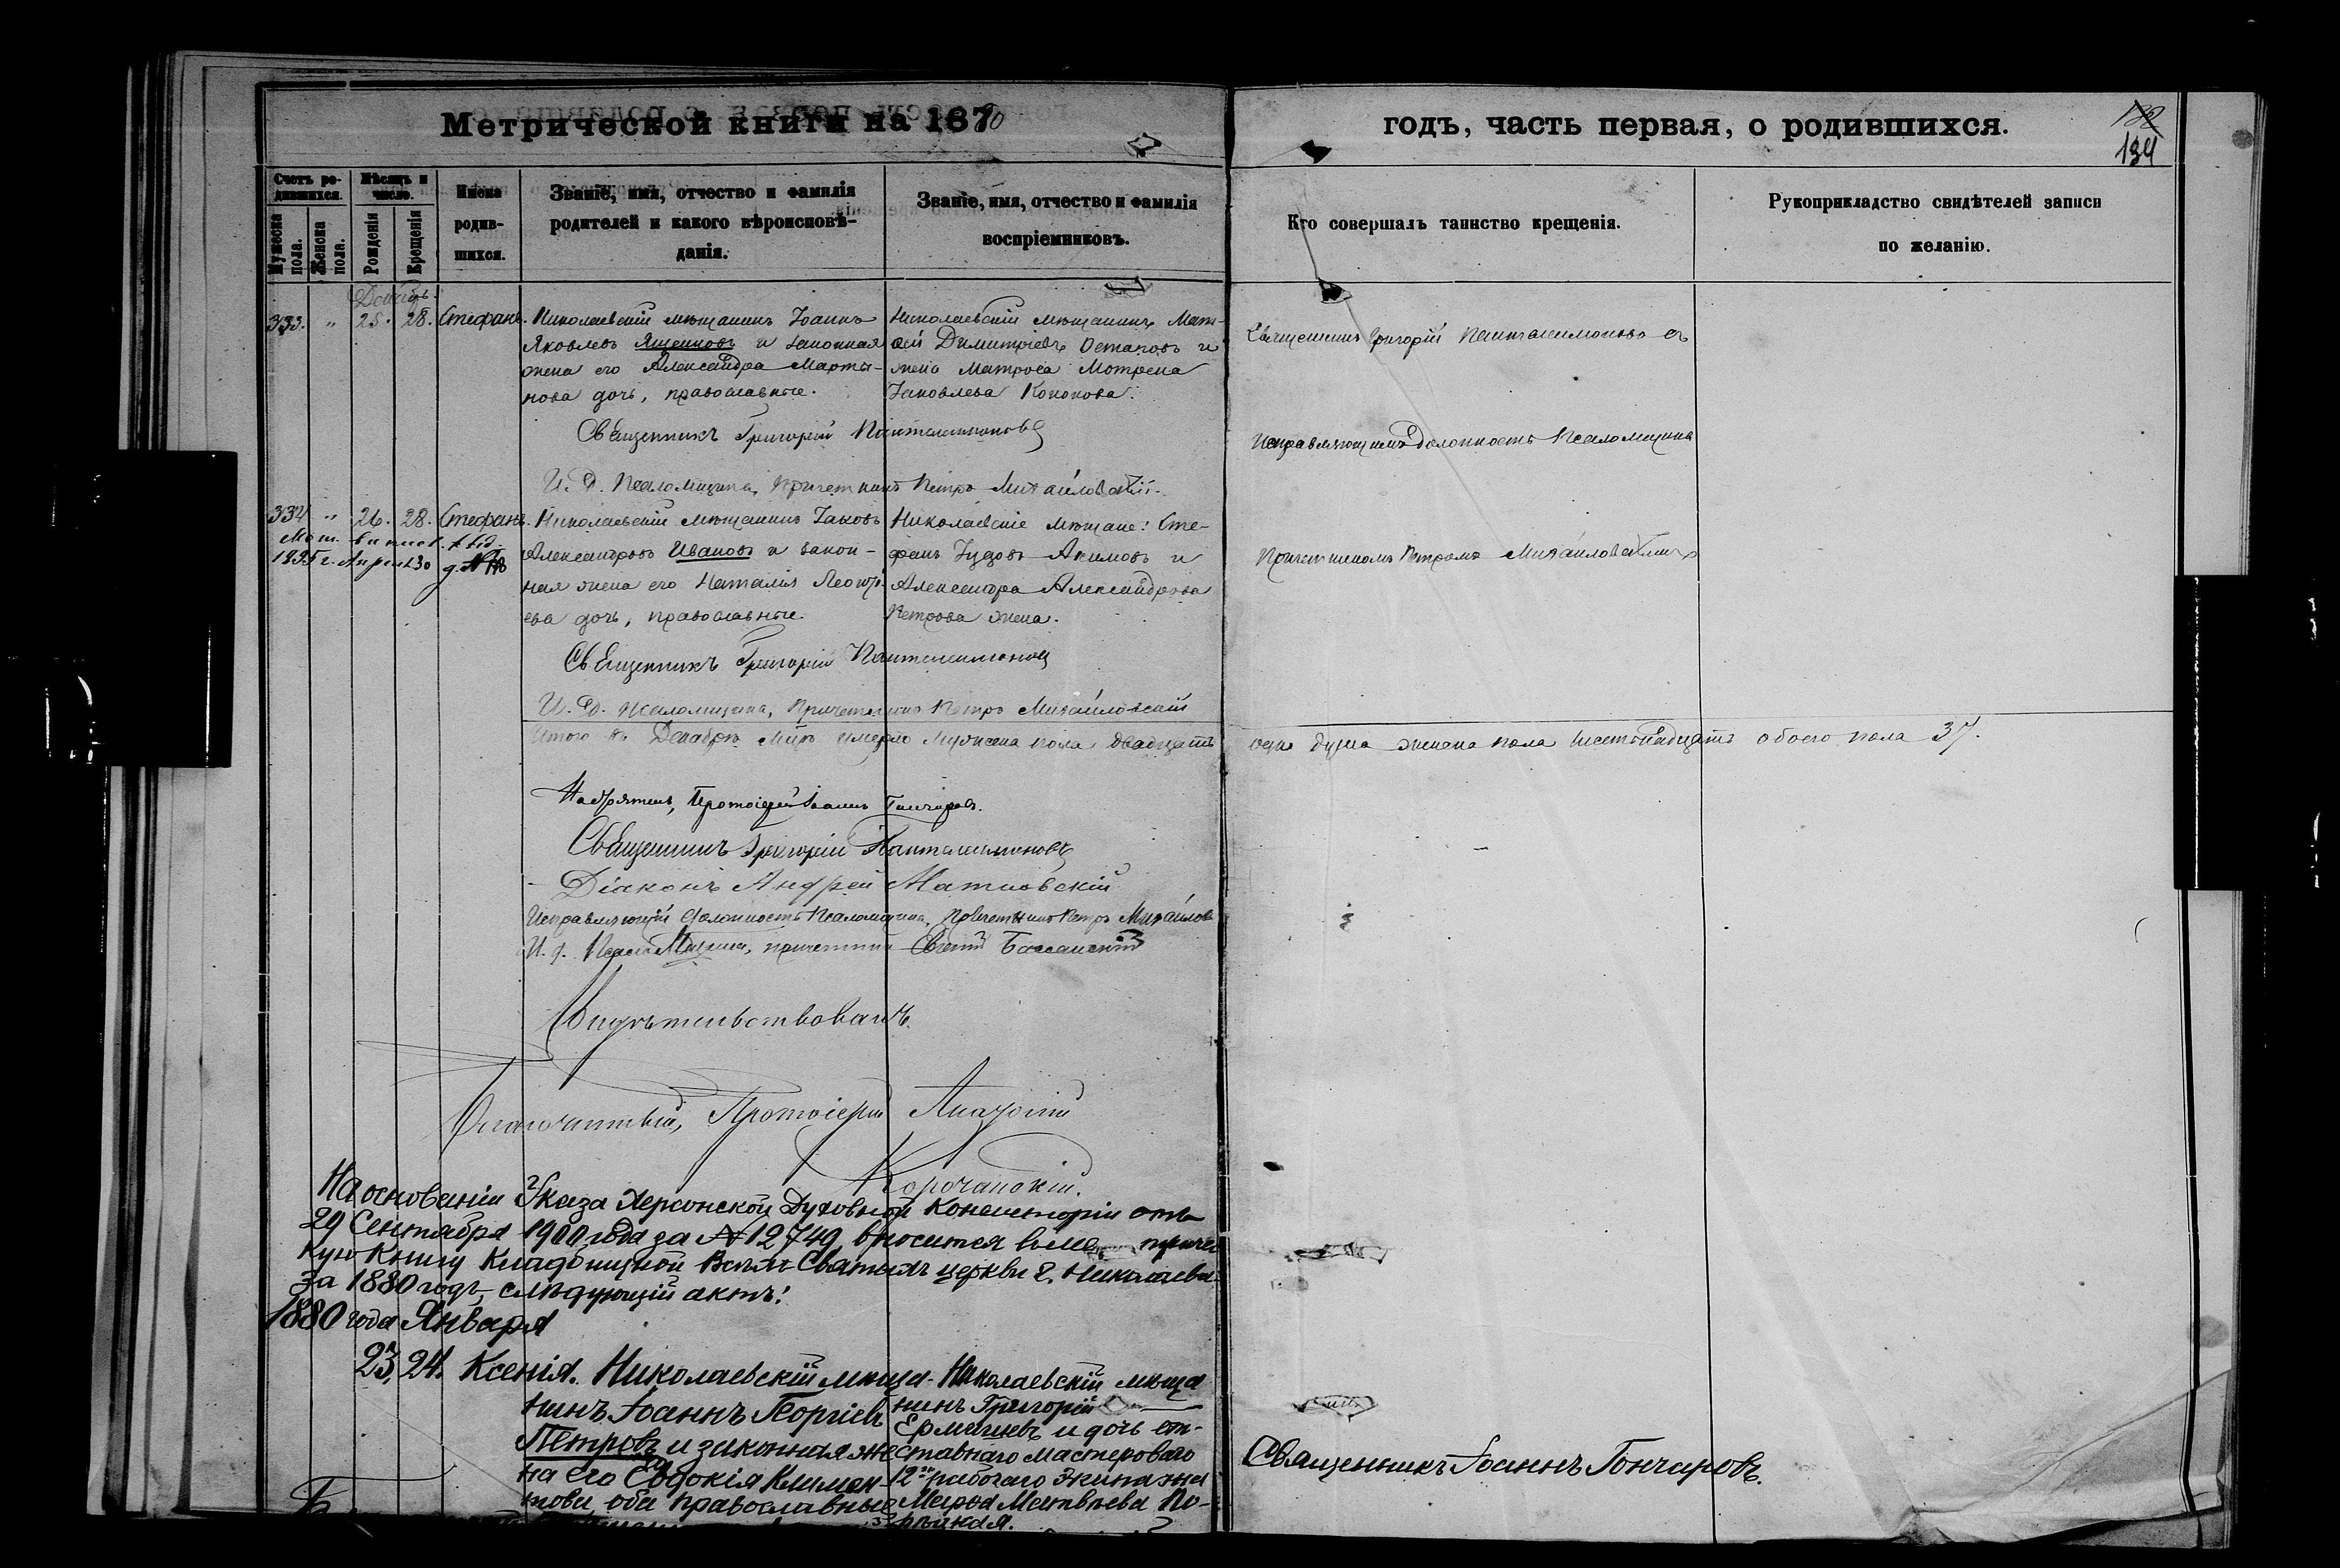 Метрической книги на 1880
годъ, часть первая, о родившихся.
134
Счетъ родившихся.
Мужеска пола.
Женска пола.
Мѣсяцъ и число.
Рожденія
Крещенія
Имена
родив-
шихся.
Званіе, имя, отчество и фамилія
родителей и какого вѣроисповѣ-
данія.
Званіе, имя, отчество и фамилія
воспріемниковъ.
Кто совершалъ таинство крещенія.
Рукоприкладство свидѣтелей записи
по желанію.
Декабрь
333. " 25. 28. Стефанъ.
Николаевскій мѣщанинъ Іоаннъ
Яковлевъ Ященковъ и законная
жена его Александра Марты-
нова дочь, православные.
Николаевскій мѣщанинъ Мат-
ѳей Димитріевъ Остаповъ и
жена матроса Мотрена
Іаковлева Кононова.
Священникъ Григорій Пантелеимоновъ съ
Священникъ Григорій Пантелеимоновъ
Исправляющимъ должность Псаломщика
И. Д. Псаломщика, Причетникъ Петръ Михайловскій.
334 " 26. 28. Стефанъ.
1895 г. Апреля 30
Николаевскій мѣщанинъ Іаковъ
Александровъ Ивановъ и закон-
ная жена его Наталія Леонті-
ева дочь, православные.
Николаевскіе мѣщане: Сте-
фанъ Іудовъ Акимовъ и
Александра Александрова
Петрова жена.
Причетникомъ Петромъ Михайловскимъ
Священникъ Григорій Пантелеимоновъ
И. Д. псаломщика, Причетникъ Петръ Михайловскій
Итого въ Декабрѣ м-цѣ умерло мужеска пола двадцать
одна душа женска пола шестнадцать обоего пола 37.
Протоіерей Іоаннъ Гончаровъ.
Священникъ Григорій Пантелеимоновъ
Діаконъ Андрей
Исправляющій должность Псаломщика, Причетникъ Петръ Михайлов
И. д. Псаломщика, причетникъ
Свидѣтельствовалъ.
Благочинный, Протоіерей
Корочанскій.
На основаніи Указа Херсонской Духовной Консисторіи отъ
29 Сентября 1900 года за № 12749, вносится въ
кую книгу Кладбищной Всѣхъ-Святыхъ церкви г. Николаева
за 1880 годъ, слѣдующій актъ:
1880 года Января
23, 24. Ксенія.
Николаевскій мѣща-
нинъ Іоаннъ Георгіевъ
Петровъ и законная же-
на его Евдокія Климен-
това, оба православные
Николаевскій мѣща
нинъ Григорій
и дочь от-
ставнаго мастероваго
12го рабочаго Экипажа
Марѳа Матвѣева По-
Священникъ Іоаннъ Гончаровъ.